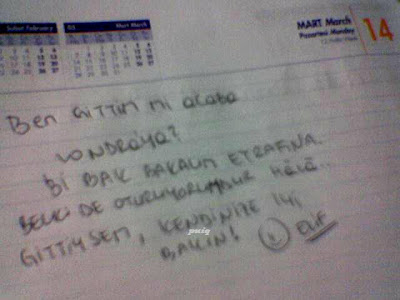 Subat February
Mart March
MART March
Pazartesi Monday
14
Ben Gittim mi acaba
LONDRAYA?
Bİ BAK BAKALIM ETRAFINA.
BELKİ DE OTURUYORUMDUR HÂLÂ..
GİTTİYSEM, KENDİNİZE İYİ
BAKIN! ELİF
puiq